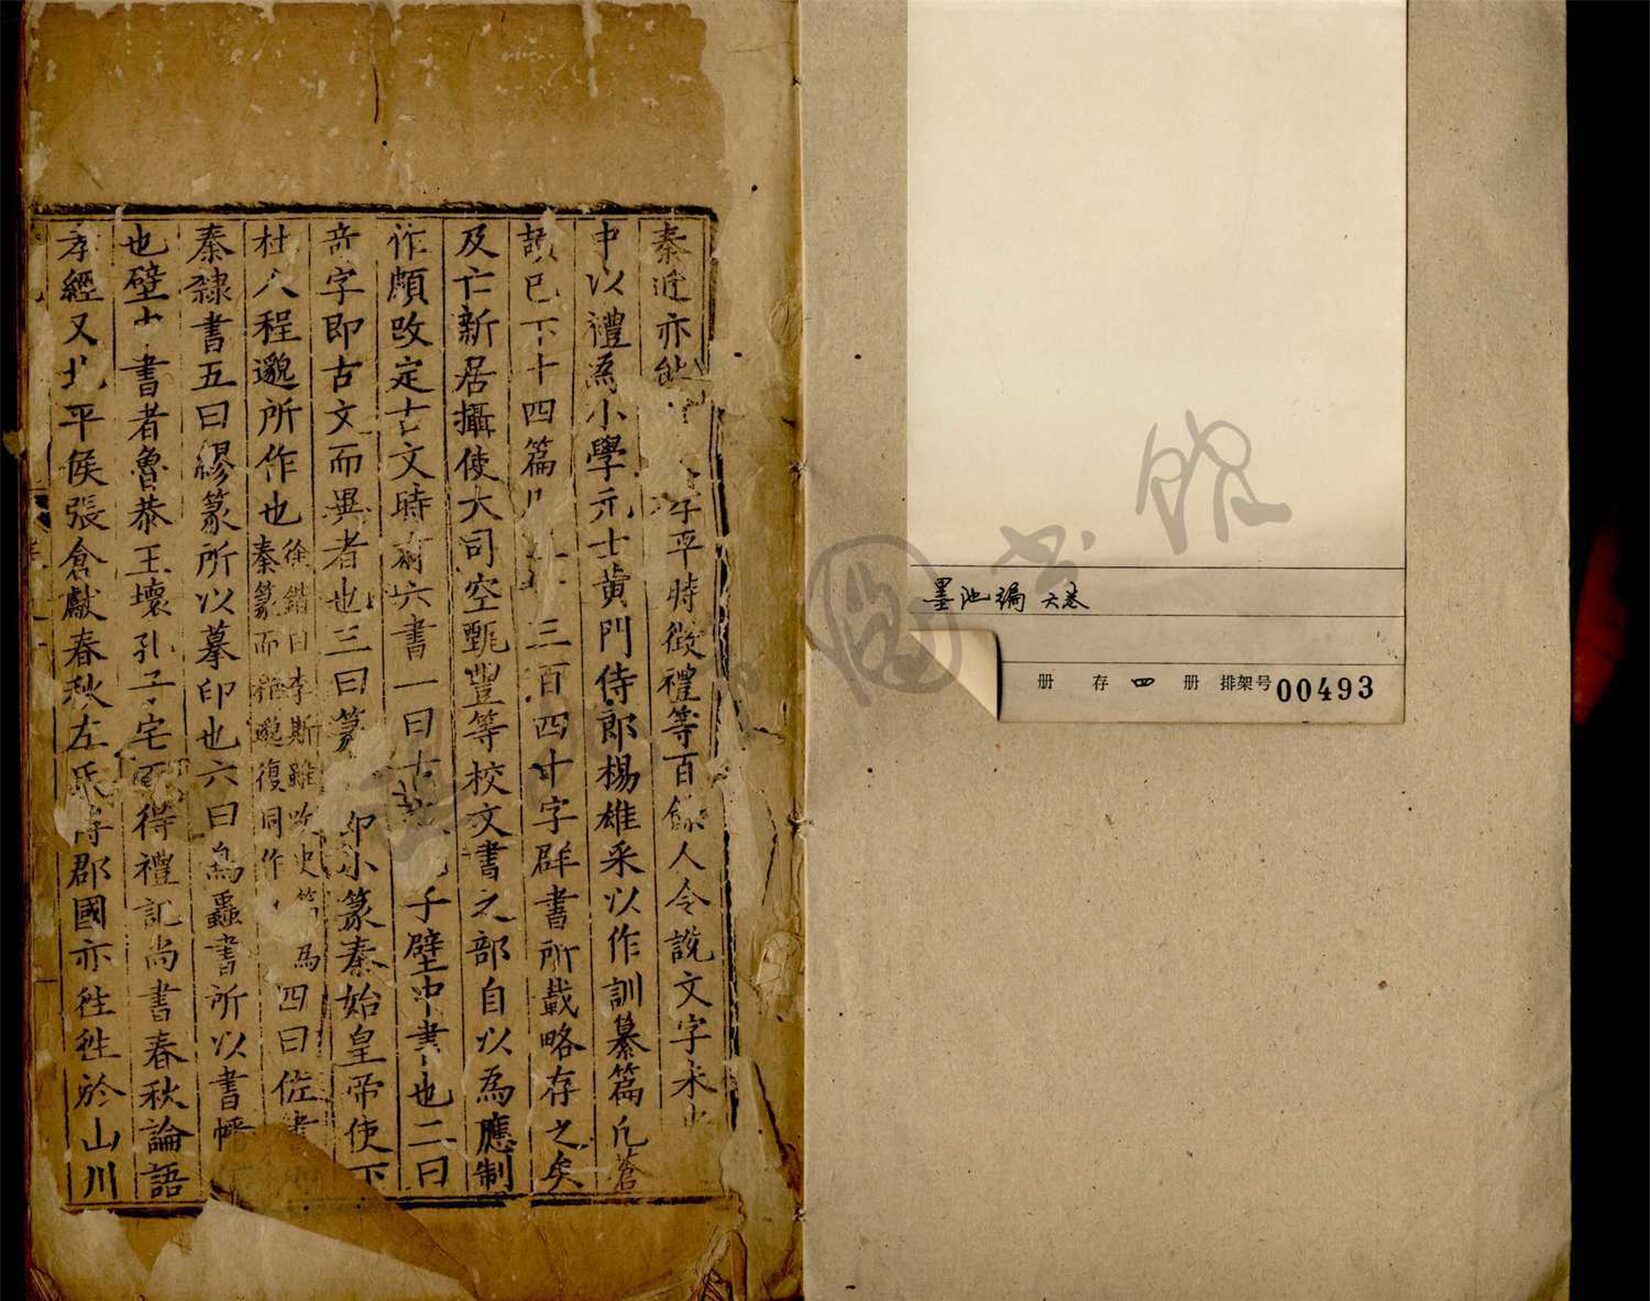 墨池編 六卷
册 存 四 册 排架号 00493
秦近亦能 平時徴禮等百餘人令說文字未
中以禮爲小學元士黄門侍郎楊雄采以作訓纂篇凡蒼
頡已下十四篇 三百四十字群書所載略存之矣
及亡新居攝使大司空甄豐等校文書之部自以爲應制
作頗改定古文時有六書一曰古 子壁中書也二曰
奇字即古文而異者也三曰篆 即小篆秦始皇帝使下
杜人程邈所作也 徐鍇曰李斯雖改史篇 爲秦篆而程邈復同作 四曰佐書
秦隸書五曰繆篆所以摹印也六曰鳥蟲書所以書幡
也壁中書者魯恭王壞孔子宅而得禮記尚書春秋論語
孝經又北平侯張倉獻春秋左氏傳郡國亦往往於山川
圖書館